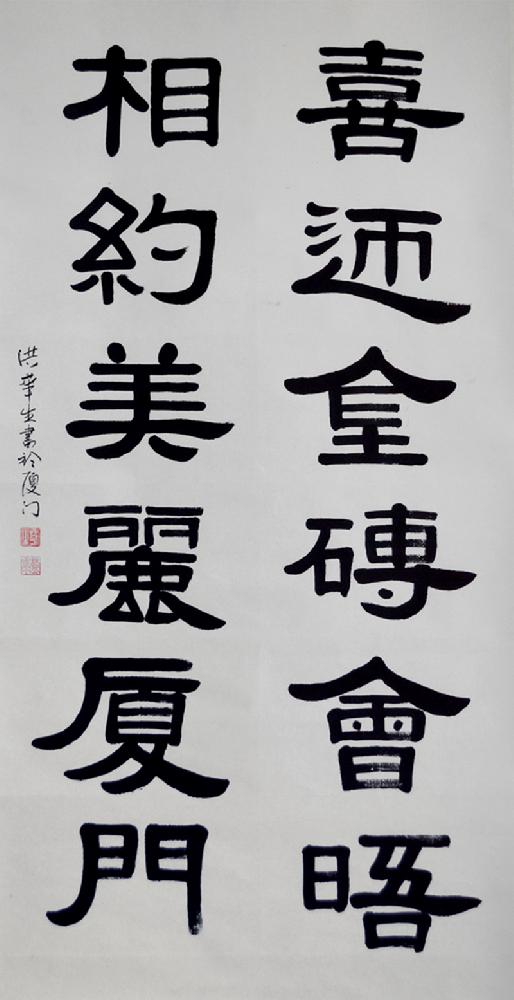 喜迊金磚會晤
相約美麗厦門
洪華生書於厦门